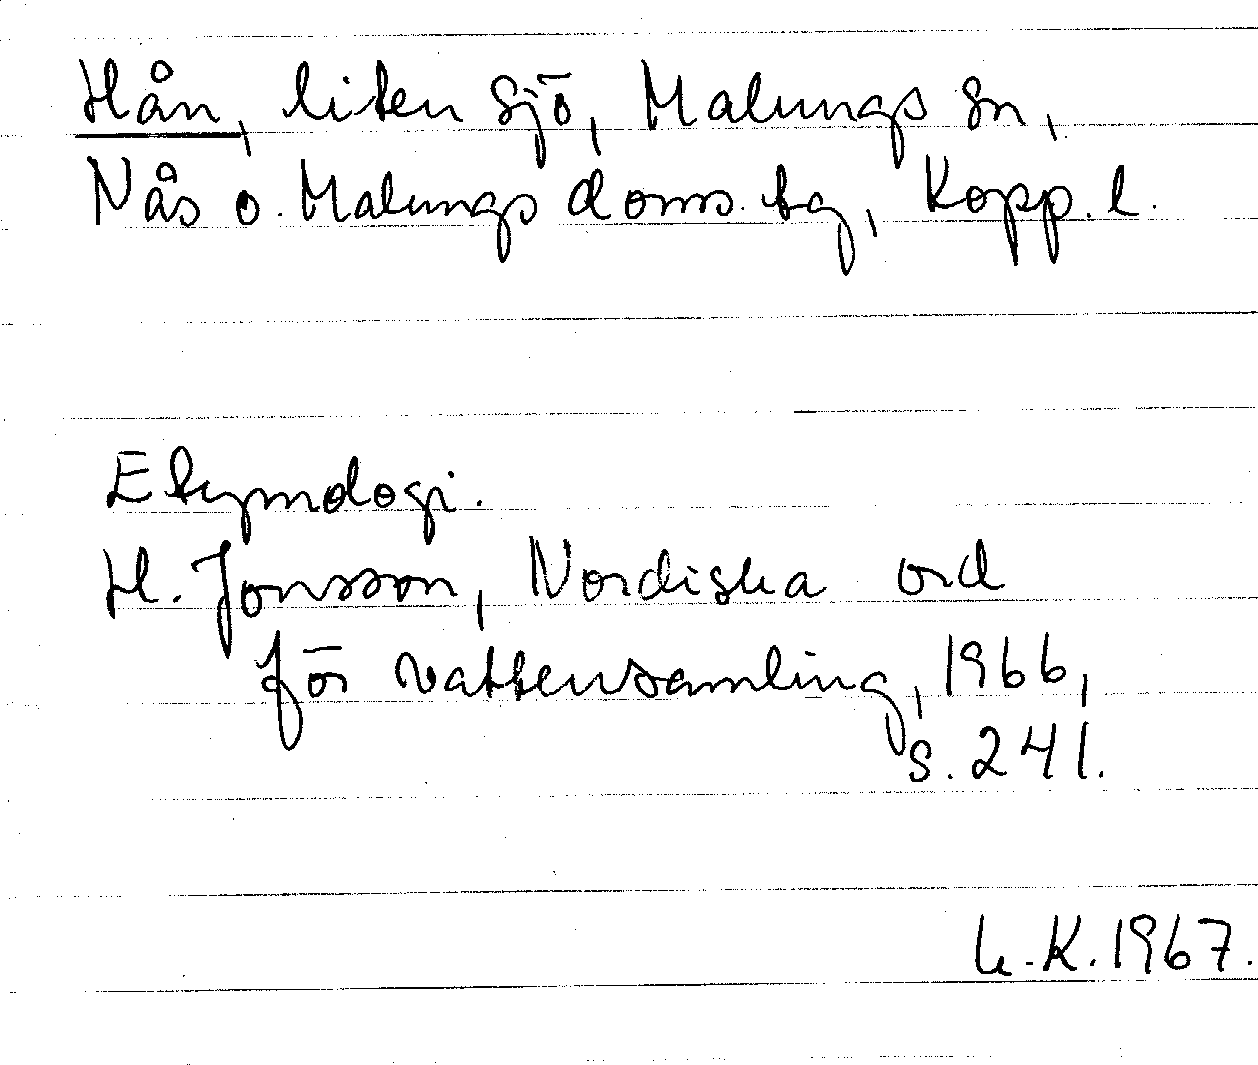 Hån, liten sjö, Malungs sn,
Nås o. Malungs doms. tg, Kopp. l.
Etymologi.
H. Jonsson, Nordiska ord
för vattensamling, 1966,
s. 241.
K. 1967.